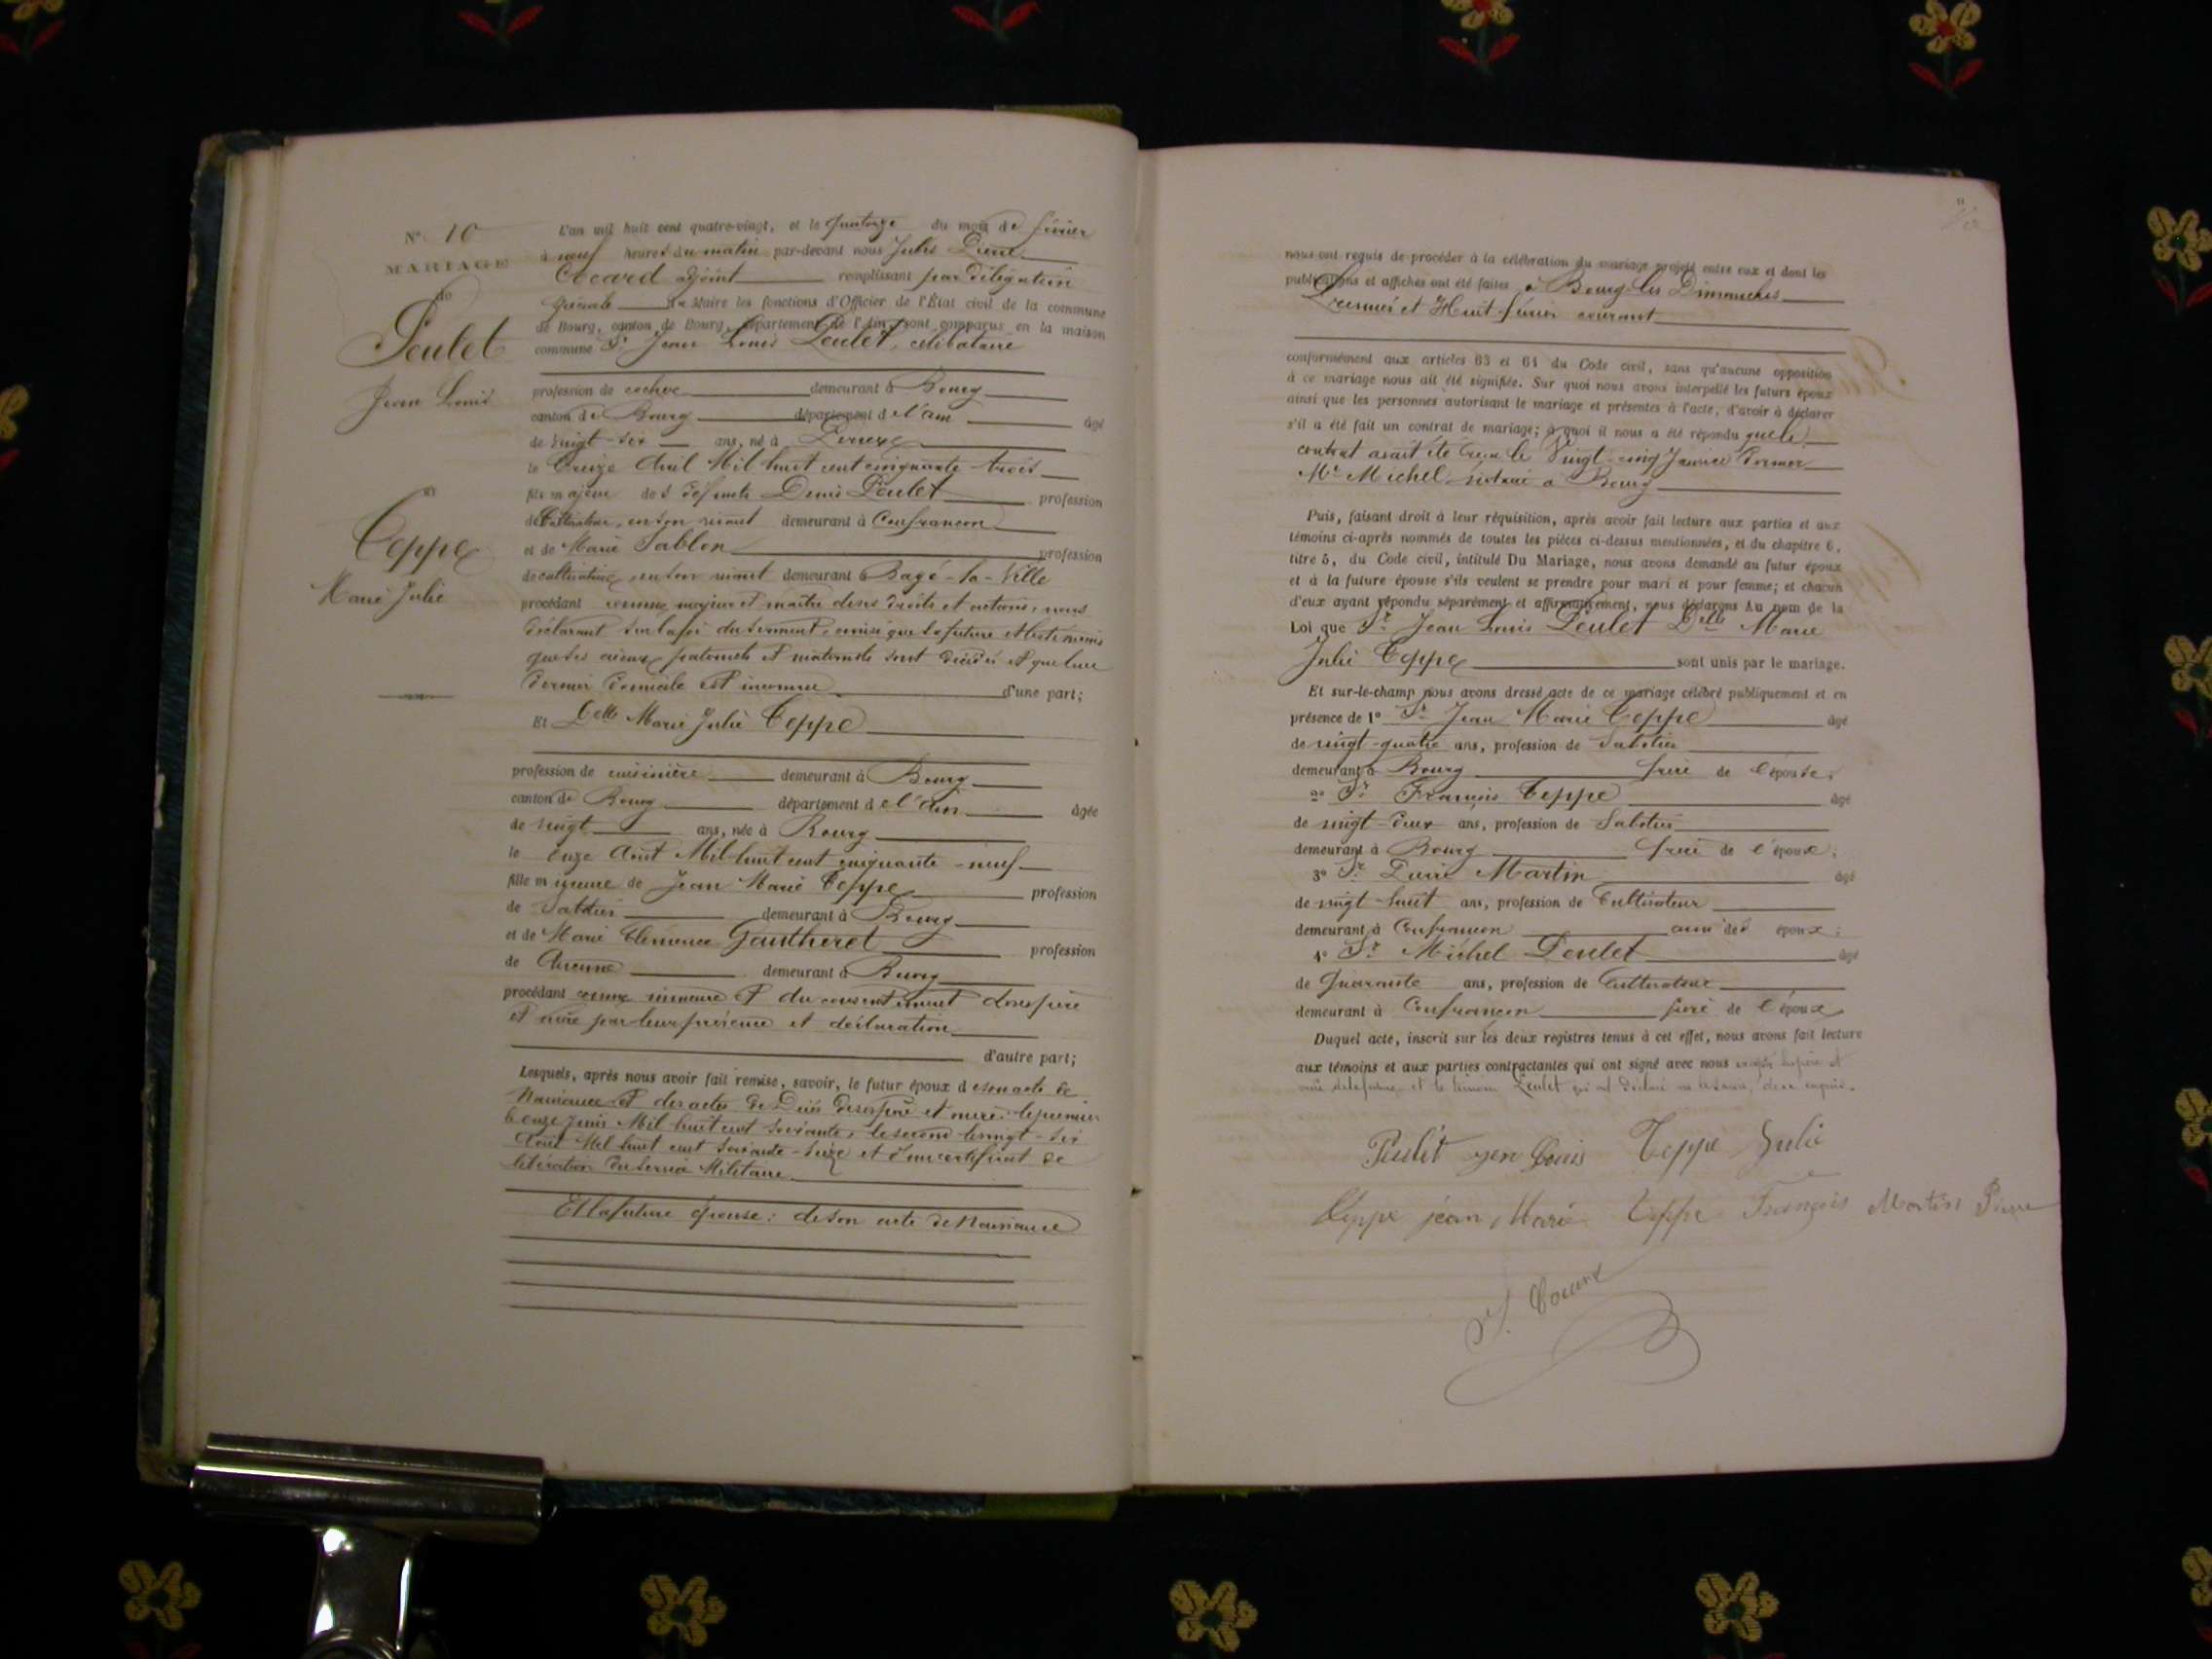 N° 10
MARIAGE
de
Poulet
Jean Louis
et
Teppe
Marie Julie
L'an mil huit cent quatre-vingt, et le quatorze du mois de février
à neuf heures du matin par-devant nous Jules Pierre
adjoint remplissant par délégation
spéciale du Maire les fonctions d'Officier de l'État civil de la commune
de Bourg, canton de Bourg, département de l'Ain, sont comparus en la maison
commune Sr Jean Louis Poulet, célibataire
profession de cocher demeurant à Bourg
canton de Bourg département de l'ain âgé
de vingt-six ans, né à
le treize Avril Mil huit cent cinquante-trois
fils majeur des défunts Denis Poulet profession
de Cultivateur, en son vivant demeurant à Confrançon
et de Marie Sablon profession
de cultivatrice, en son vivant demeurant à Bagé-la-Ville
procédant comme majeur et maître de ses droits et actions, nous
déclarant sur la foi du serment, ainsi que la future et les témoins
que ses aïeux paternels et maternels sont décédés et que leur
dernier domicile est inconnu d'une part;
Et Delle Marie Julie Teppe
profession de cuisinière demeurant à Bourg
canton de Bourg département de l'ain âgée
de vingt ans, née à Bourg
le onze Août Mil huit cent cinquante-neuf
fille mineure de Jean Marie Teppe profession
de Sabotier demeurant à Bourg
et de Marie Clémence Gautheret profession
de Aucune demeurant à Bourg
procédant comme mineure et du consentement de ses père
et mère par leur présence et déclaration
d'autre part;
Lesquels, après nous avoir fait remise, savoir, le futur époux de son acte de
Naissance et des actes de Décès de ses père et mère: le premier
le onze Juin Mil huit cent soixante, le second le vingt-six
Août Mil huit cent soixante-seize et d'un certificat de
libération du service Militaire
Et la future épouse: de son acte de Naissance
nous ont requis de procéder à la célébration du mariage projeté entre eux et dont les
publications et affiches ont été faites à Bourg les Dimanches
Premier et Huit février courant
conformément aux articles 63 et 64 du Code civil, sans qu'aucune opposition
à ce mariage nous ait été signifiée. Sur quoi nous avons interpellé les futurs époux
ainsi que les personnes autorisant le mariage et présentes à l'acte, d'avoir à déclarer
s'il a été fait un contrat de mariage; à quoi il nous a été répondu que le
contrat avait été reçu le Vingt-cinq Janvier dernier
Me Michel notaire à Bourg
Puis, faisant droit à leur réquisition, après avoir fait lecture aux parties et aux
témoins ci-après nommés de toutes les pièces ci-dessus mentionnées, et du chapitre 6,
titre 5, du Code civil, intitulé Du Mariage, nous avons demandé au futur époux
et à la future épouse s'ils veulent se prendre pour mari et pour femme; et chacun
d'eux ayant répondu séparément et affirmativement, nous déclarons Au nom de la
Loi que Sr Jean Louis Poulet Delle Marie
Julie Teppe sont unis par le mariage.
Et sur-le-champ nous avons dressé acte de ce mariage célébré publiquement et en
présence de 1° Sr Jean Marie Teppe âgé
de vingt-quatre ans, profession de Sabotier
demeurant à Bourg frère de l'épouse;
2° Sr François Teppe âgé
de vingt-deux ans, profession de Sabotier
demeurant à Bourg frère de l'épouse;
3° Sr Pierre Martin âgé
de vingt-huit ans, profession de Cultivateur
demeurant à Confrançon ami des époux;
4° Sr Michel Poulet âgé
de Quarante ans, profession de Cultivateur
demeurant à Confrançon frère de l'époux
Duquel acte, inscrit sur les deux registres tenus à cet effet, nous avons fait lecture
aux témoins et aux parties contractantes qui ont signé avec nous excepté les père et
mère de la future et le témoin Poulet qui ont déclaré ne le savoir, de ce requis.
Poulet jen Louis Teppe Julie
Teppe jean Marie Teppe François Martin Pierre